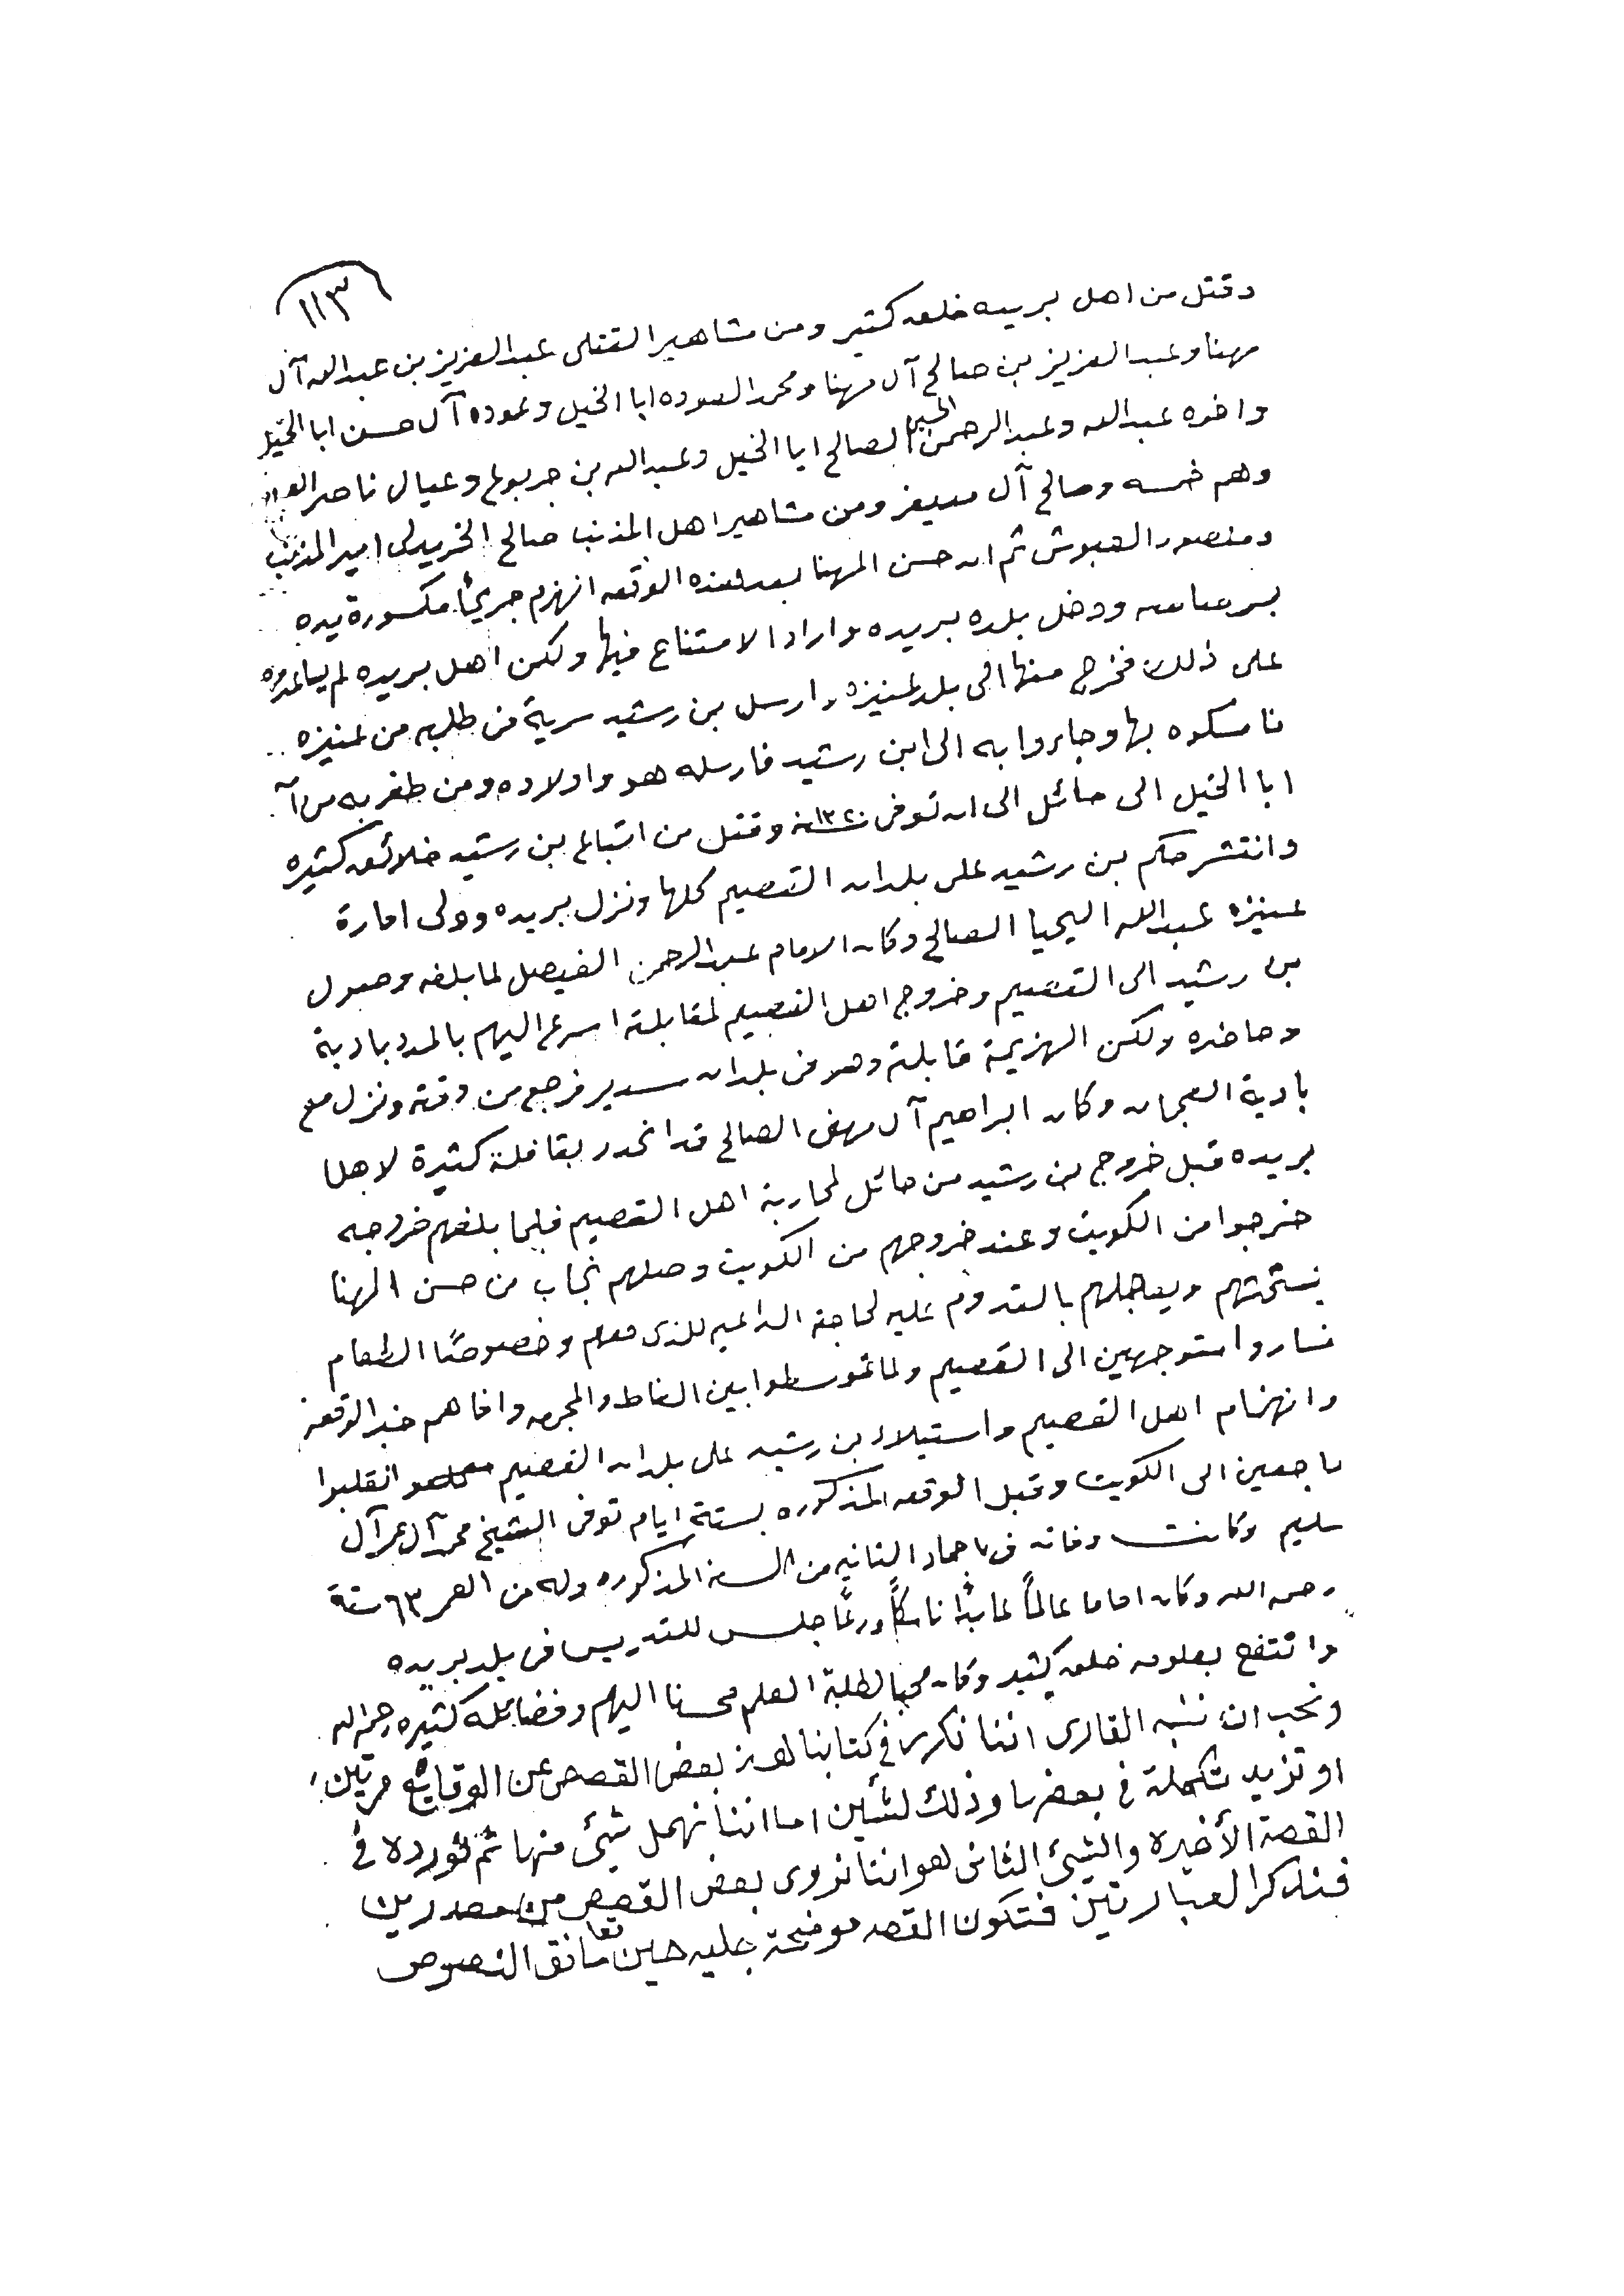 ١١٣
وقتل من اهل بريده خلق كثير ومن مشاهير القتلى عبدالعزيز بن عبدالله آل
مهنا وعبدالعزيز بن صالح آل مهنا ومحمد العوده ابا الخيل وعوده آل حسن ابا الخيل
واخوه عبدالله وعبدالرحمن الصالح ابا الخيل وعبدالله بن جربوع وعيال ناصر
وهم خمسه وصالح آل ومن مشاهير اهل المذنب صالح الخريدلى امير المذنب
ومنصور العبوش ثم ان حسن المهنا بعد هذه الوقعه انهزم جريحًا مكسورة يده
برصاصه ودخل بلده بريده واراد الامتناع فيها ولكن اهل بريده لم يساعدوه
على ذلك فخرج منها الى بلد عنيزه وارسل بن رشيد سرية في طلبه من عنيزه
فامسكوه بها وجاءوا به الى ابن رشيد فارسله هو واولاده ومن ظفر به من آل
ابا الخيل الى حائل الى ان توفى ١٣٢٠نة وقتل من اتباع بن رشيد خلائق كثيره
وانتشر حكم بن رشيد على بلدان القصيم كلها ونزل بريده وولى امارة
عنيزه عبدالله اليحيا الصالح وكان الامام عبدالرحمن الفيصل لما بلغه وصول
بن رشيد الى القصيم وخروج اهل القصيم لمقابلته اسرع اليهم بالمدد بادية
وحاضره ولكن الهزيمة قابلته وهو في بلدان سدير فرجع من وقته ونزل مع
بادية العجمان وكان ابراهيم آل مهنى الصالح قد انحدر بقافلة كثيرة لاهل
بريده قبل خروج بن رشيد من حائل لمحاربة اهل القصيم فلما بلغهم خروجه
خرجوا من الكويت وعند خروجهم من الكويت وصلهم نجاب من حسن المهنا
يستحثهم ويعاجلهم بالقدوم عليه لحاجة الداعيه للذى معهم وخصوصًا الطعام
فساروا متوجهين الى القصيم ولما توسطوا بين الغاط والمجمعه وافاهم خبر الوقعة
وانهزام اهل القصيم واستيلاء بن رشيد على بلدان القصيم انقلبوا
راجعين الى الكويت وقبل الوقعه المذكوره بستة ايام توفى الشيخ محمد آل عمر آل
سليم وكانت وفاته في ٧ جماد الثانيه من السنه المذكوره وله من العمر ٦٣ سنة
رحمه الله وكان اماما عالمًا عابدًا ناسكًا ورعًا جلس للتدريس في بلد بريده
وانتفع بعلومه خلق كثير وكان محبا لطلبة العلم محسنا اليهم وفضائله كثيره رحمه الله
ونحب ان ننبه القارى اننا نكرر في كتابنا هذا بعض القصص عن الوقايع مرتين
او نزيد تكملة في بعضها وذلك لشئين اما اننا نهمل شيئ منها ثم نورده في
القصة الأخيره والشيئ الثانى هو اننا نروى بعض القصص من مصدرين
فنذكر العبارتين فتكون القصه موضحة جليه حين تعانق النصوص